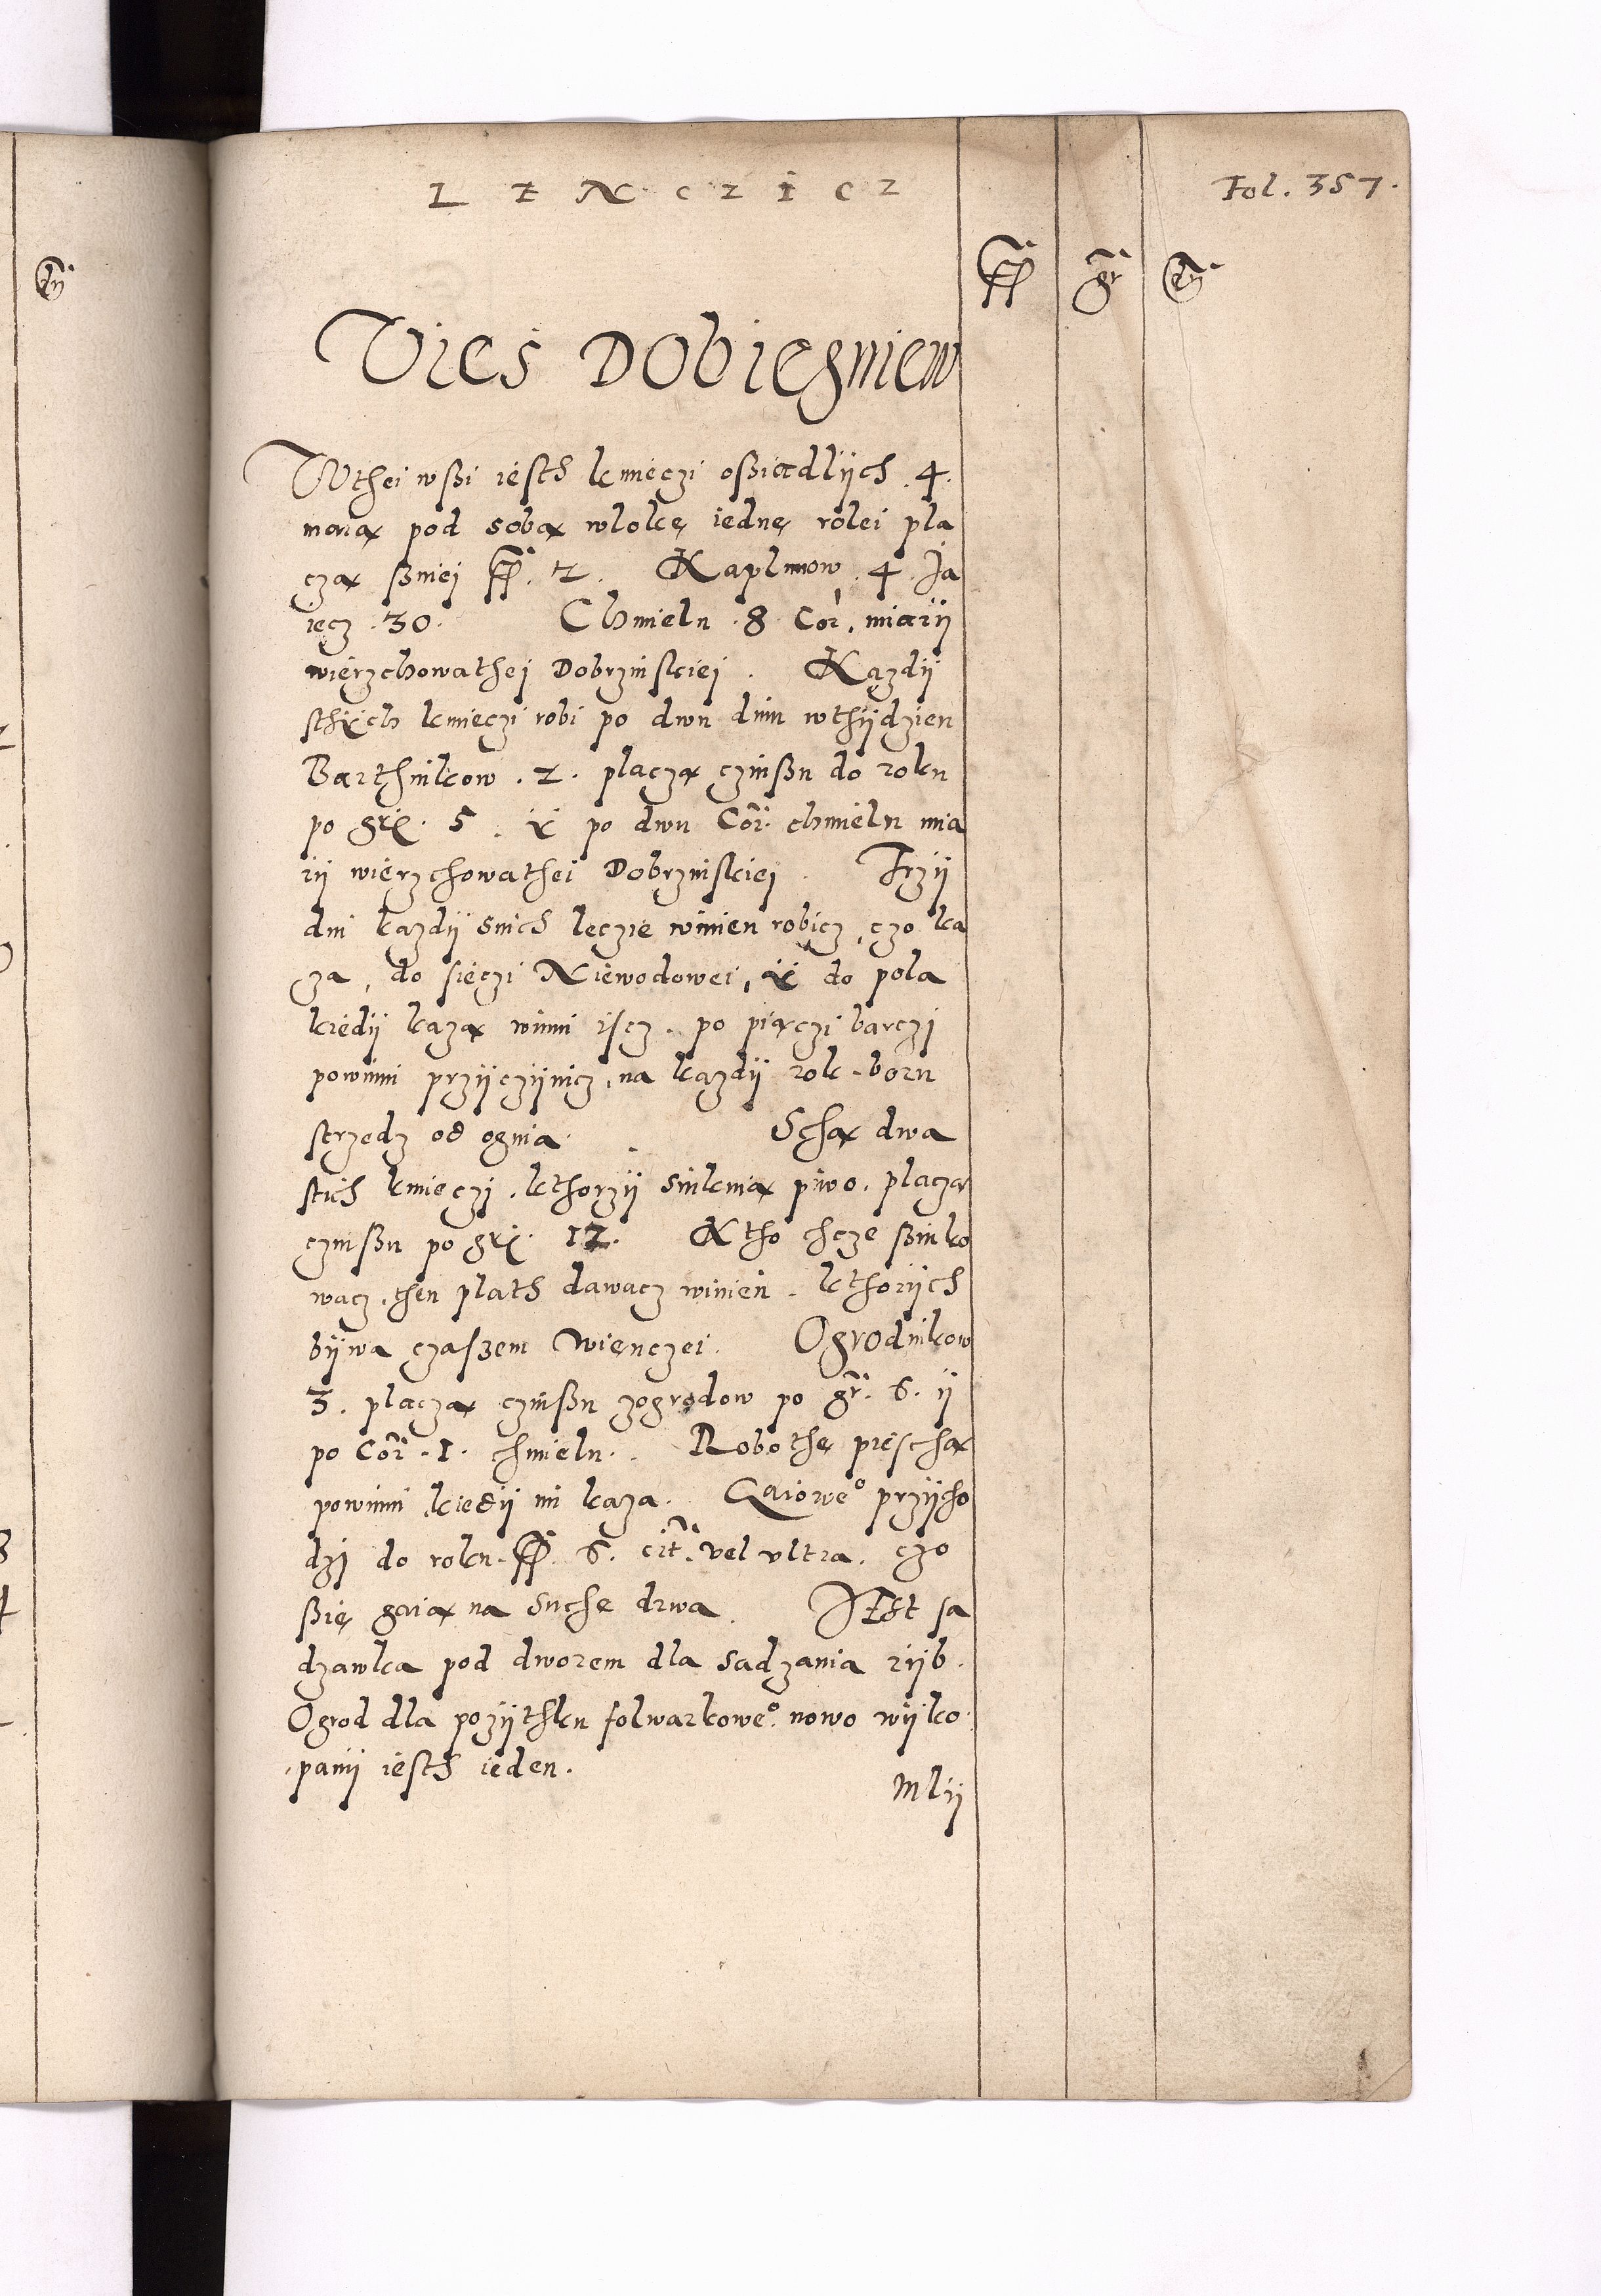 LENCZICZ
Fol. 357.
gr
Vies Dobiegniew
Wthei wßi iesth kmieczi oßiadlÿch .4.
maią pod sobą wlokę iednę rolei pla
czą ßniej . 2. Kaplunow .4. Ja
iecz .30. Chmielu .8. Cor. miarÿ
wierzchowathej Dobrzinskiej . Kazdÿ
sthÿch kmieczi robi po dwu dniu wthÿdzien
Barthnikow .2. placzą czinßu do roku
po gr. 5. Y po dwu Cor. chmielu mia
rÿ wierzchowathei Dobrzinskiej . Trzÿ
dni kazdÿ snich leczie winien robicz, czo ka
za, do sieczi Niewodowei, Y do pola
kiedÿ kazą winni iscz. po piączi barczj
powinni przÿczÿnicz, na kazdÿ rok. boru
strzedz od ognia. Schą dwa
stich kmieczj. kthorzÿ sinkuią piwo. placzą
czinßu po gr. 12. Ktho chcze ßinko
wacz. then plath dawacz winien. kthorÿch
bÿwa czaszem wienczei. Ogrodnikow
3. placzą czinßu zogrodow po gr. 6. ÿ
po Cor. 1. chmielu. Robothę pieschą
powinni kiedÿ im kaza. Gaiowe° przÿcho
dzj do roku. 6. cit. vel vltra. czo
ßię gaią na suche drwa. JEst sa
dzawka pod dworem dla sadzania rÿb.
Ogrod dla pozÿthku folwarkowe° nowo wÿko
panÿ iesth ieden.
Mlÿ